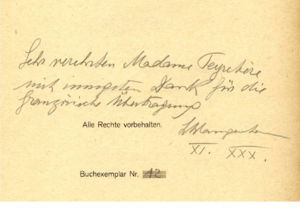 Sehr verehrten Madame Teyretère
mit innigsten Dank für die
französische Übertragung
Alle Rechte vorbehalten.
XI. XXX.
Buchexemplar Nr. 12